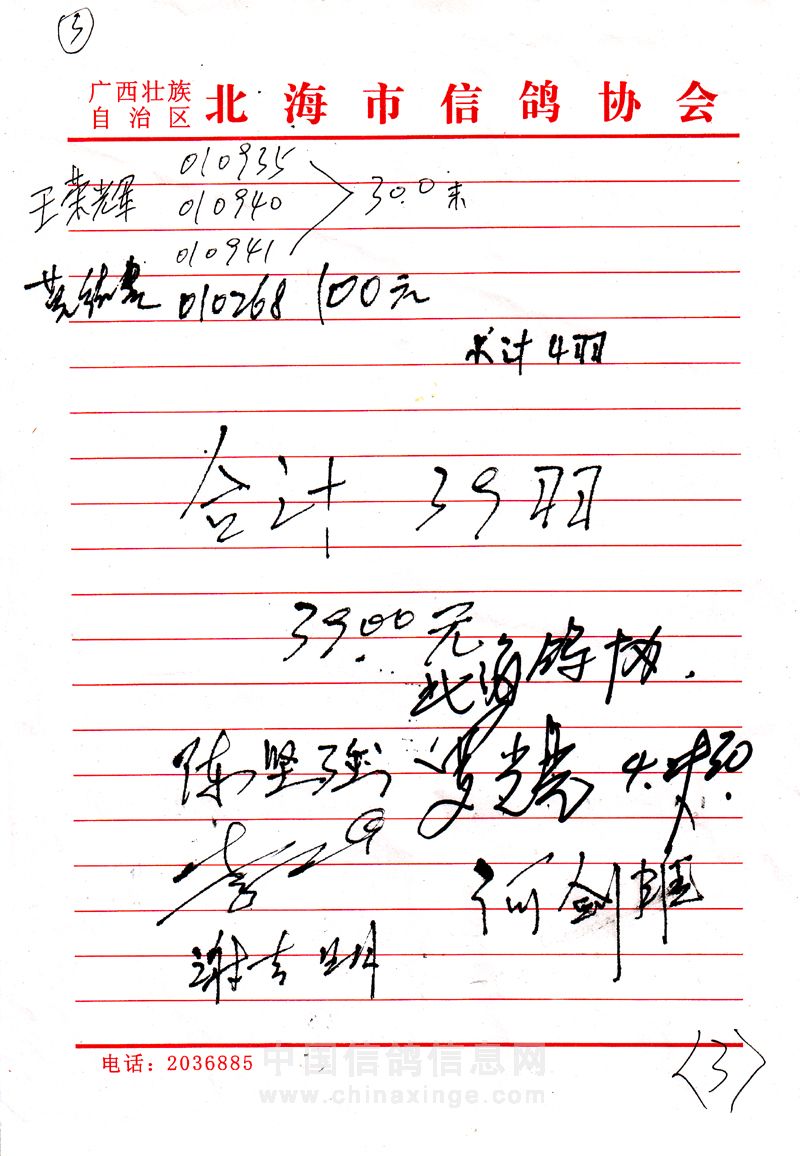 3
广西壮族自治区 北海市信鸽协会
010935
王荣辉 010940 30.0 未
010941
010268 100元
共计 4羽
合计 39羽
39.00元
北海鸽协.
陈坚强
李
何剑雄
谢
电话：2036885
中国信鸽信息网
www.chinaxinge.com
〈3〉